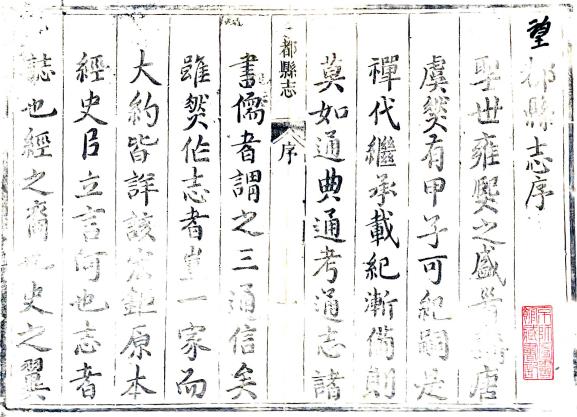 望都縣志序
聖世雍熙之盛唐
虞爰有甲子可紀嗣是
禪代繼承載紀漸備則
莫如通典通考通志諸
都縣志 序
書儒者謂之三通信矣
雖然作志者豈一家而
大約皆詳該宏鉅原本
經史臣立言何也志者
誌也經之裔也史之翼